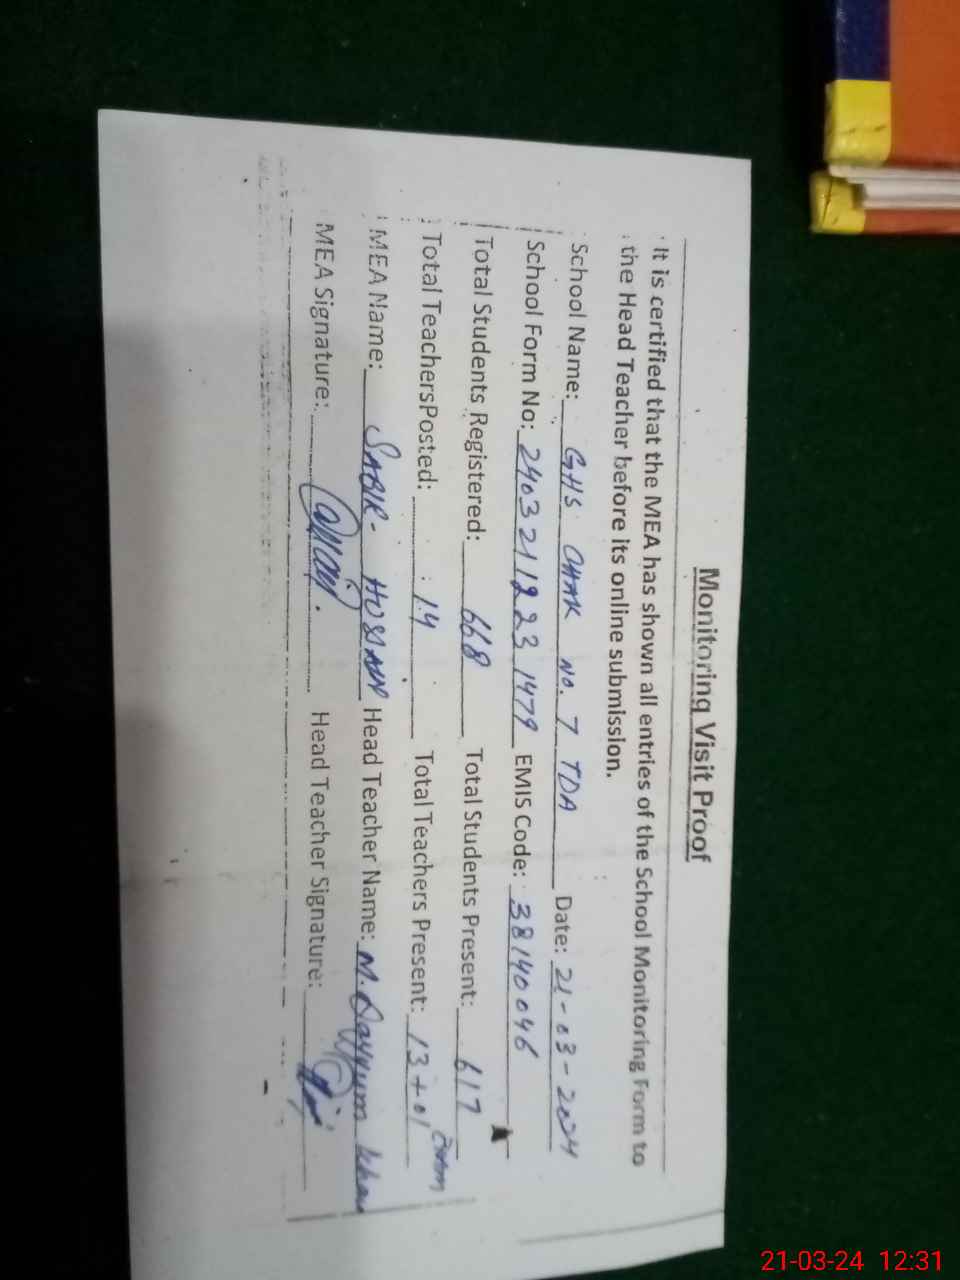 Monitoring Visit Proof
It is certified that the MEA has shown all entries of the School Monitoring Form to
the Head Teacher before its online submission.
School Name: GHS CHAK No. 7 TDA Date: 21-03-2024
School Form No: 24032112231479 EMIS Code: 38140046
Total Students Registered: 668 Total Students Present: 617
Total TeachersPosted: 14 Total Teachers Present: 13+01 Exam
MEA Name: SABIR HUSSAIN Head Teacher Name: M. Qayyum Khan
MEA Signature: Head Teacher Signature:
21-03-24 12:31